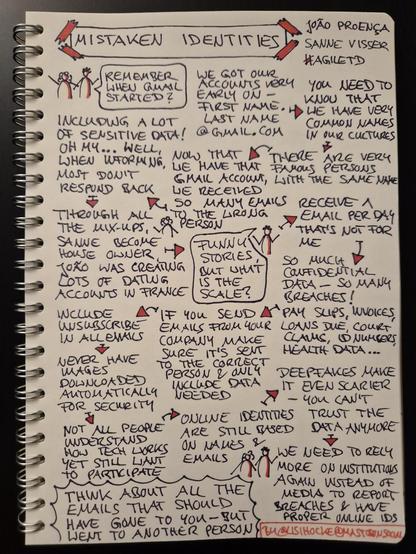 MISTAKEN IDENTITIES
JOÃO PROENÇA
SANNE VISSER
#AGILETD
REMEMBER
WHEN GMAIL
STARTED?
WE GOT OUR
ACCOUNTS VERY
EARLY ON -
FIRST NAME.
LAST NAME
@GMAIL.COM
YOU NEED TO
KNOW THAT
WE HAVE VERY
COMMON NAMES
IN OUR CULTURES
THERE ARE VERY
FAMOUS PERSONS
WITH THE SAME NAME
NOW THAT
WE HAVE THAT
GMAIL ACCOUNT,
WE RECEIVED
SO MANY EMAILS
TO THE WRONG
PERSON
INCLUDING A LOT
OF SENSITIVE DATA!
OH MY... WELL,
WHEN INFORMING,
MOST DON'T
RESPOND BACK
THROUGH ALL
THE MIX-UPS,
SANNE BECOME
HOUSE OWNER
JOÃO WAS CREATING
LOTS OF DATING
ACCOUNTS IN FRANCE
FUNNY
STORIES,
BUT WHAT
IS THE
SCALE?
RECEIVE A
EMAIL PER DAY
THAT'S NOT FOR
ME
SO MUCH
CONFIDENTIAL
DATA - SO MANY
BREACHES!
PAY SLIPS, INVOICES,
LOANS DUE, COURT
CLAIMS, ID NUMBERS,
HEALTH DATA...
IF YOU SEND
EMAILS FROM YOUR
COMPANY MAKE
SURE IT'S SENT
TO THE CORRECT
PERSON & ONLY
INCLUDE DATA
NEEDED
INCLUDE
UNSUBSCRIBE
IN ALL EMAILS
NEVER HAVE
IMAGES
DOWNLOADED
AUTOMATICALLY
FOR SECURITY
NOT ALL PEOPLE
UNDERSTAND
HOW TECH WORKS
YET STILL WANT
TO PARTICIPATE
ONLINE IDENTITIES
ARE STILL BASED
ON NAMES &
EMAILS
DEEPFAKES MAKE
IT EVEN SCARIER
- YOU CAN'T
TRUST THE
DATA ANYMORE
WE NEED TO RELY
MORE ON INSTITUTIONS
AGAIN INSTEAD OF
MEDIA TO REPORT
BREACHES & HAVE
PROPER ONLINE IDS
THINK ABOUT ALL THE
EMAILS THAT SHOULD
HAVE GONE TO YOU - BUT
WENT TO ANOTHER PERSON
BY @LISIHOCKE@MASTODON.SOCIAL